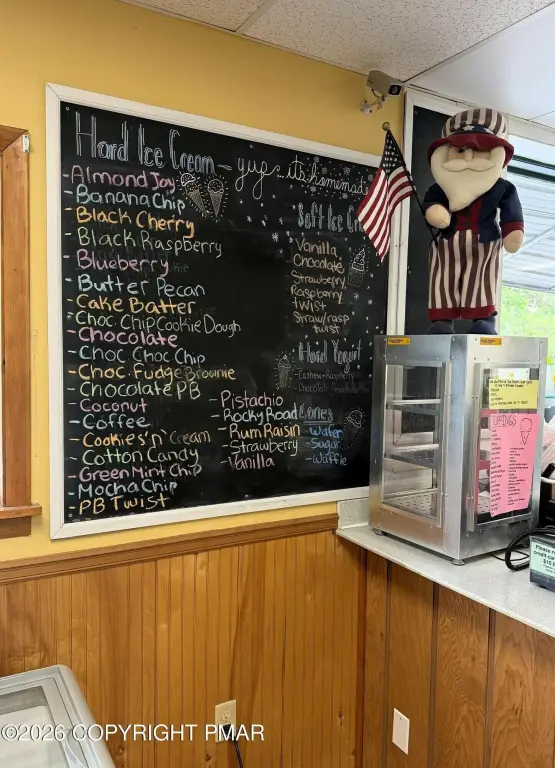 Hard Ice Cream - yup its homemade
- Almond Joy
- Banana Chip
- Black Cherry
- Black Raspberry
- Blueberry
- Butter Pecan
- Cake Batter
- Choc Chip Cookie Dough
- Chocolate
- Choc Choc Chip
- Choc. Fudge Brownie
- Chocolate PB
- Coconut
- Coffee
- Cookies 'n' Cream
- Cotton Candy
- Green Mint Chip
- Mocha Chip
- PB Twist
- Pistachio
- Rocky Road
- Rum Raisin
- Strawberry
- Vanilla
Soft Ice
Vanilla
Chocolate
Strawberry
Raspberry
Twist
Straw/rasp
twist
Hard Yogurt
Cones
- Water
- Sugar
- Waffle
©2026 COPYRIGHT PMAR